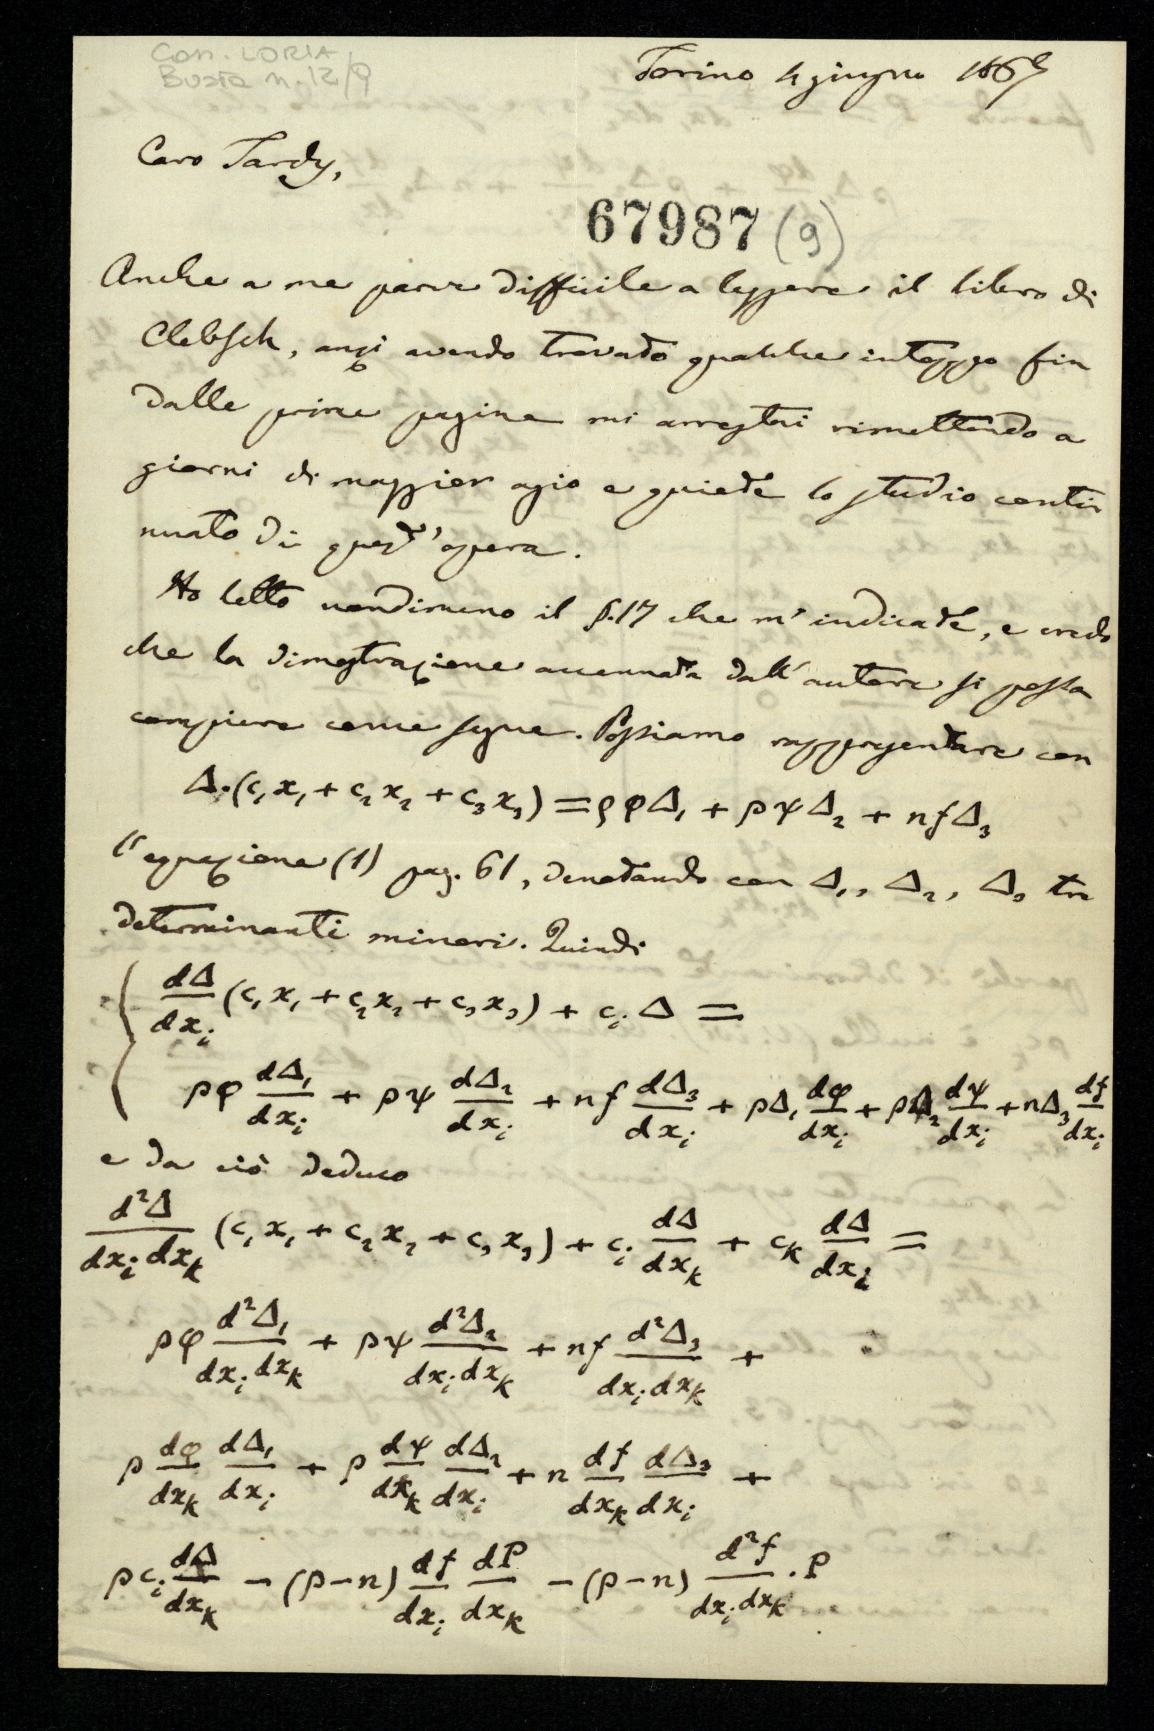 Con. LORIA
Busta n. 12/9
Torino 4 giugno 1867
Caro Tardy,
67987 (9)
Anche a me parve difficile a leggere il libro di
Clebsch, anzi avendo trovato qualche intoppo fin
dalle prime pagine mi arrestai rimettendo a
giorni di maggior agio e quiete lo studio conti-
nuato di quest'opera.
Ho letto nondimeno il §.17 che m'indicate, e credo
che la dimostrazione accennata dall'autore si possa
compiere come segue. Possiamo rappresentare con
Δ.(c₁x₁ + c₂x₂ + c₃x₃) = pφΔ₁ + pψΔ₂ + nfΔ₃
l'equazione (1) pag. 61, denotando con Δ₁, Δ₂, Δ₃ tre
determinanti minori. Quindi
{ dΔ/dxᵢ (c₁x₁ + c₂x₂ + c₃x₃) + cᵢΔ =
pφ dΔ₁/dxᵢ + pψ dΔ₂/dxᵢ + nf dΔ₃/dxᵢ + pΔ₁ dφ/dxᵢ + pΔ₂ dψ/dxᵢ + nΔ₃ df/dxᵢ
e da ciò deduco
d²Δ/dxᵢdxₖ (c₁x₁ + c₂x₂ + c₃x₃) + cᵢ dΔ/dxₖ + cₖ dΔ/dxᵢ =
pφ d²Δ₁/dxᵢdxₖ + pψ d²Δ₂/dxᵢdxₖ + nf d²Δ₃/dxᵢdxₖ +
p dφ/dxₖ dΔ₁/dxᵢ + p dψ/dxₖ dΔ₂/dxᵢ + n df/dxₖ dΔ₃/dxᵢ +
pcᵢ dΔ/dxₖ - (p-n) df/dxᵢ dP/dxₖ - (p-n) d²f/dxᵢdxₖ . P